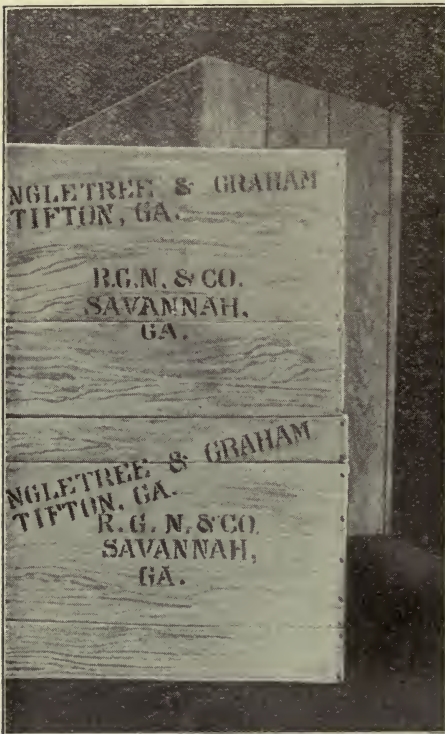 NGLETREE & GRAHAM
TIFTON, GA.
R.G.N. & CO.
SAVANNAH,
GA.
NGLETREE & GRAHAM
TIFTON, GA.
R. G. N. & CO.
SAVANNAH,
GA.